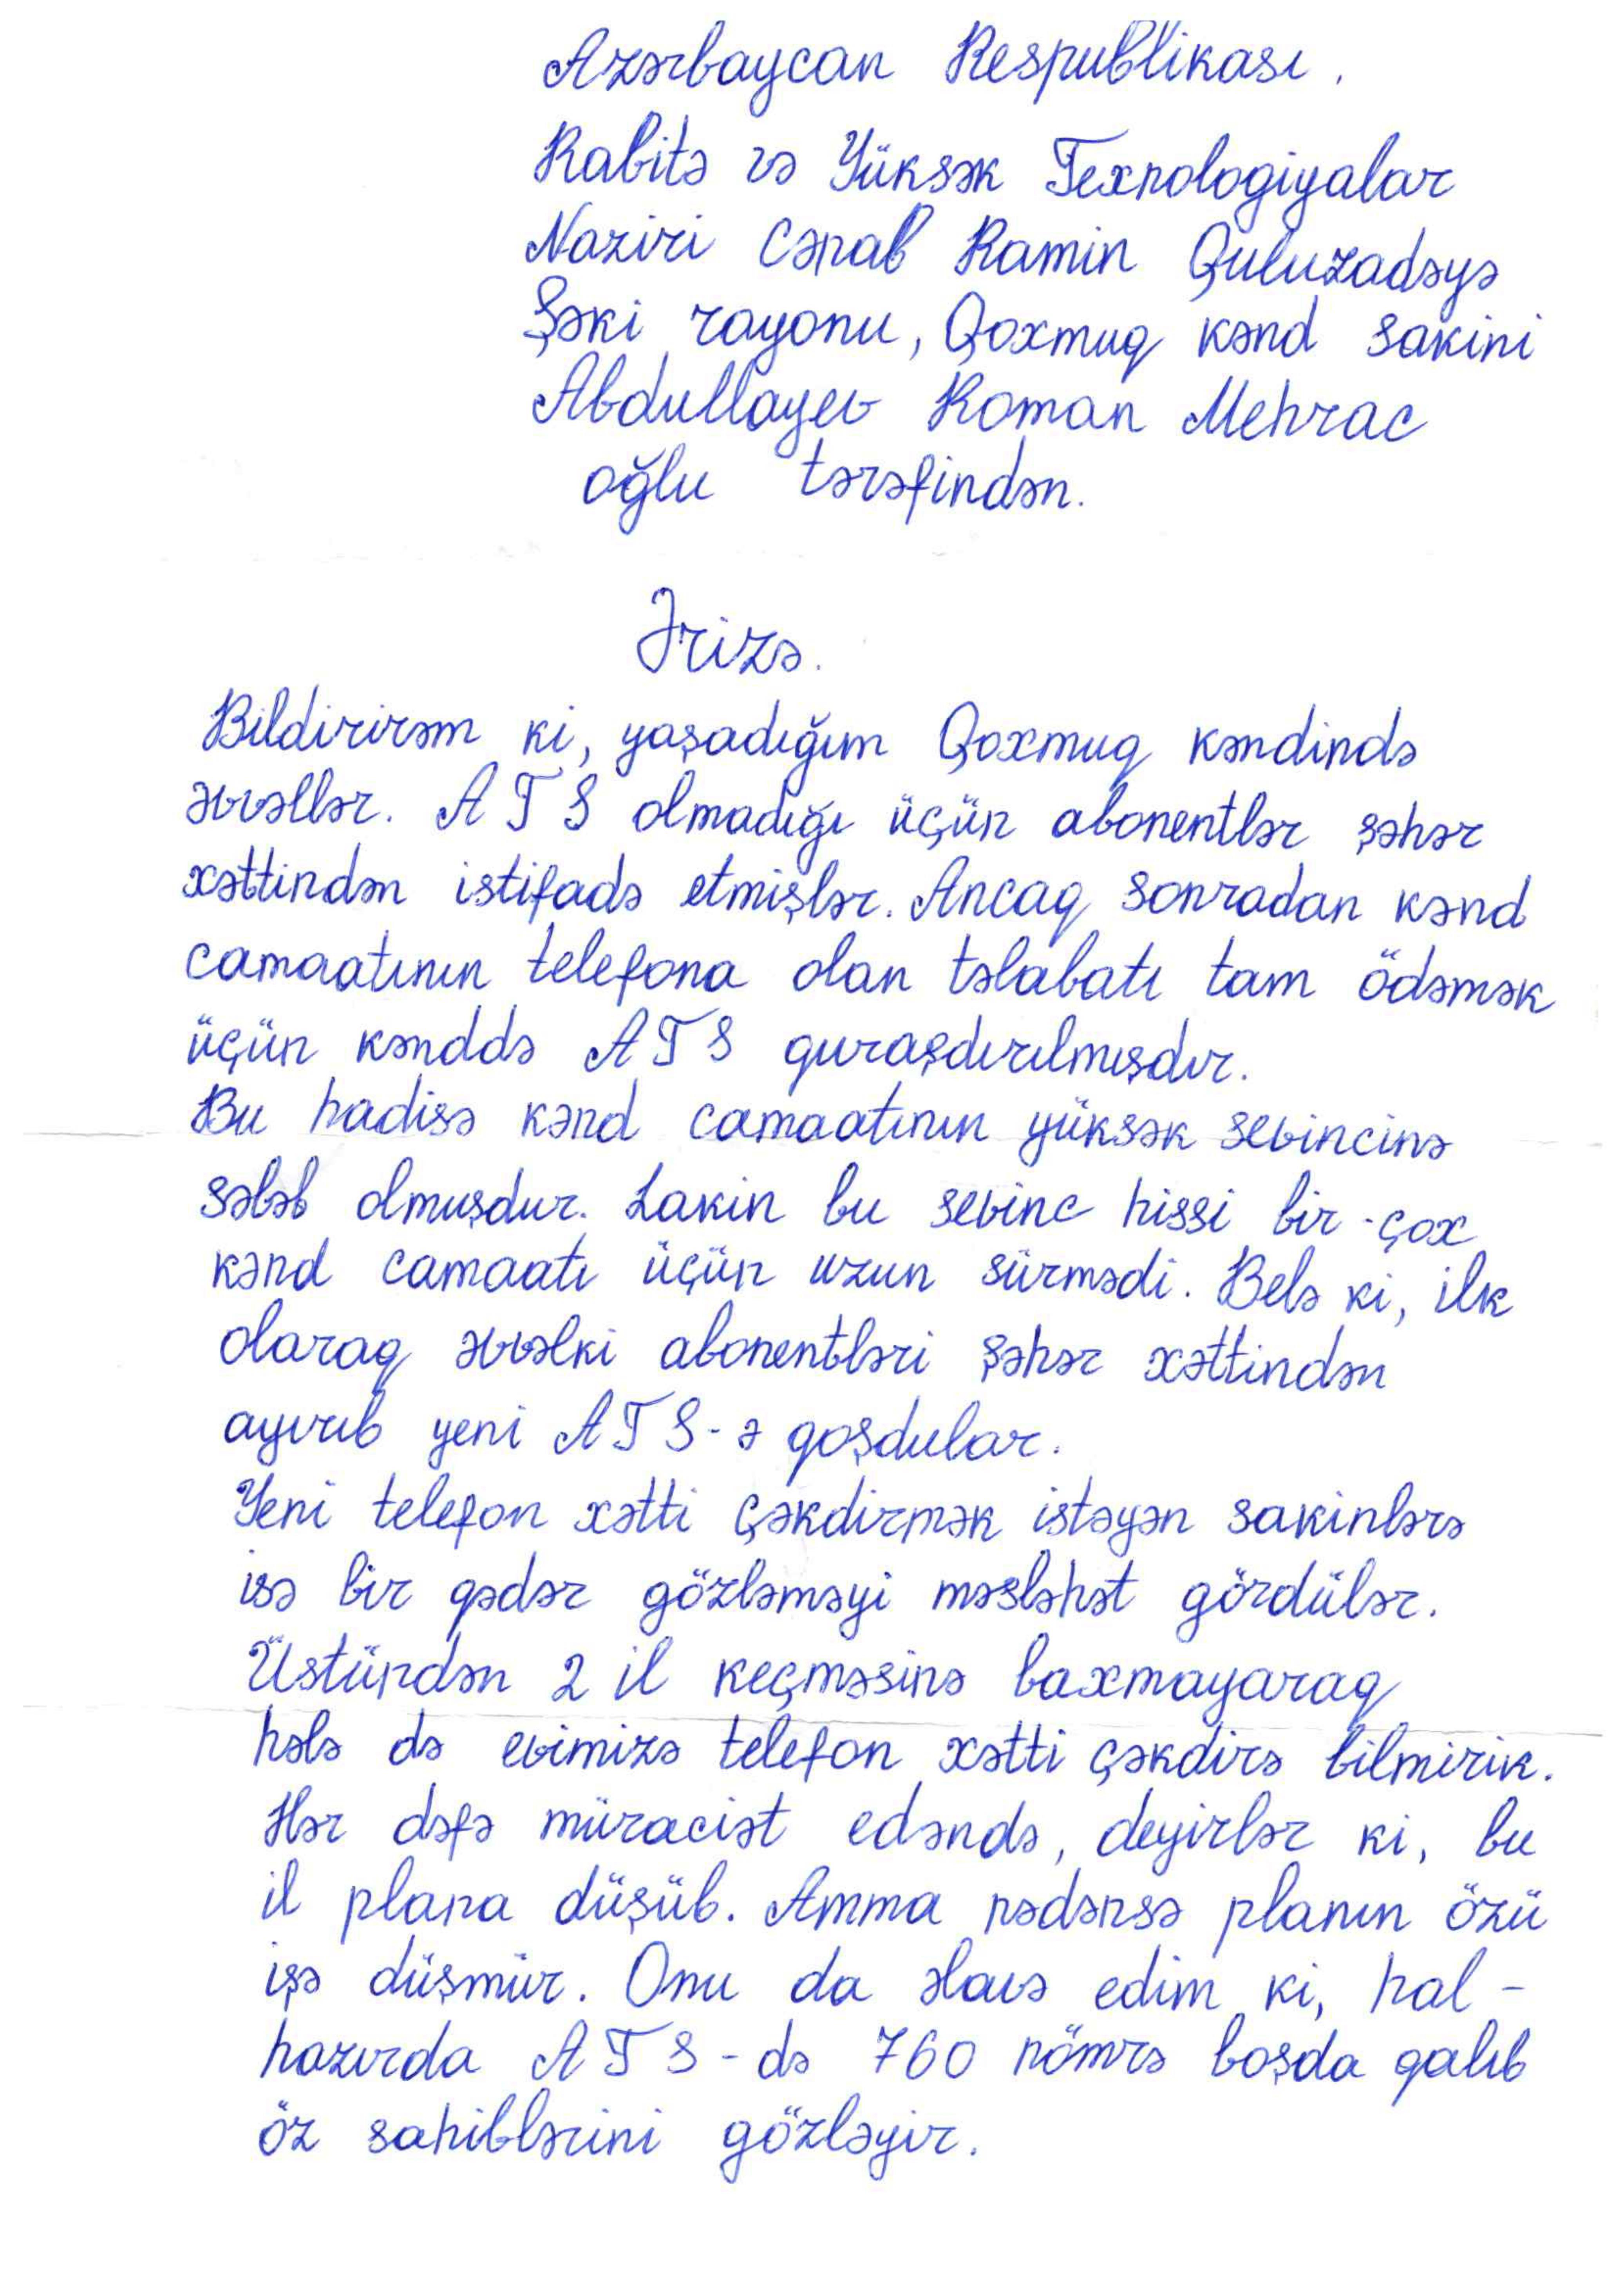 Azərbaycan Respublikası.
Rabitə və Yüksək Texnologiyalar
Naziri Cənab Ramin Quluzadəyə
Şəki rayonu, Qoxmuq kənd sakini
Abdullayev Roman Mehrac
oğlu tərəfindən.
Ərizə.
Bildirirəm ki, yaşadığım Qoxmuq kəndində
əvvəllər. ATS olmadığı üçün abonentlər şəhər
xəttindən istifadə etmişlər. Ancaq sonradan kənd
camaatının telefona olan təlabatı tam ödəmək
üçün kənddə ATS quraşdırılmışdır.
Bu hadisə kənd camaatının yüksək sevincinə
səbəb olmuşdur. Lakin bu sevinc hissi bir-çox
kənd camaatı üçün uzun sürmədi. Belə ki, ilk
olaraq əvvəlki abonentləri şəhər xəttindən
ayırıb yeni ATS-ə qoşdular.
Yeni telefon xətti çəkdirmək istəyən sakinlərə
isə bir qədər gözləməyi məsləhət gördülər.
Üstündən 2 il keçməsinə baxmayaraq
hələ də evimizə telefon xətti çəkdirə bilmirik.
Hər dəfə müraciət edəndə, deyirlər ki, bu
il plana düşüb. Amma nədənsə planın özü
işə düşmür. Onu da əlavə edim ki, hal-
hazırda ATS-də 760 nömrə boşda qalıb
öz sahiblərini gözləyir.